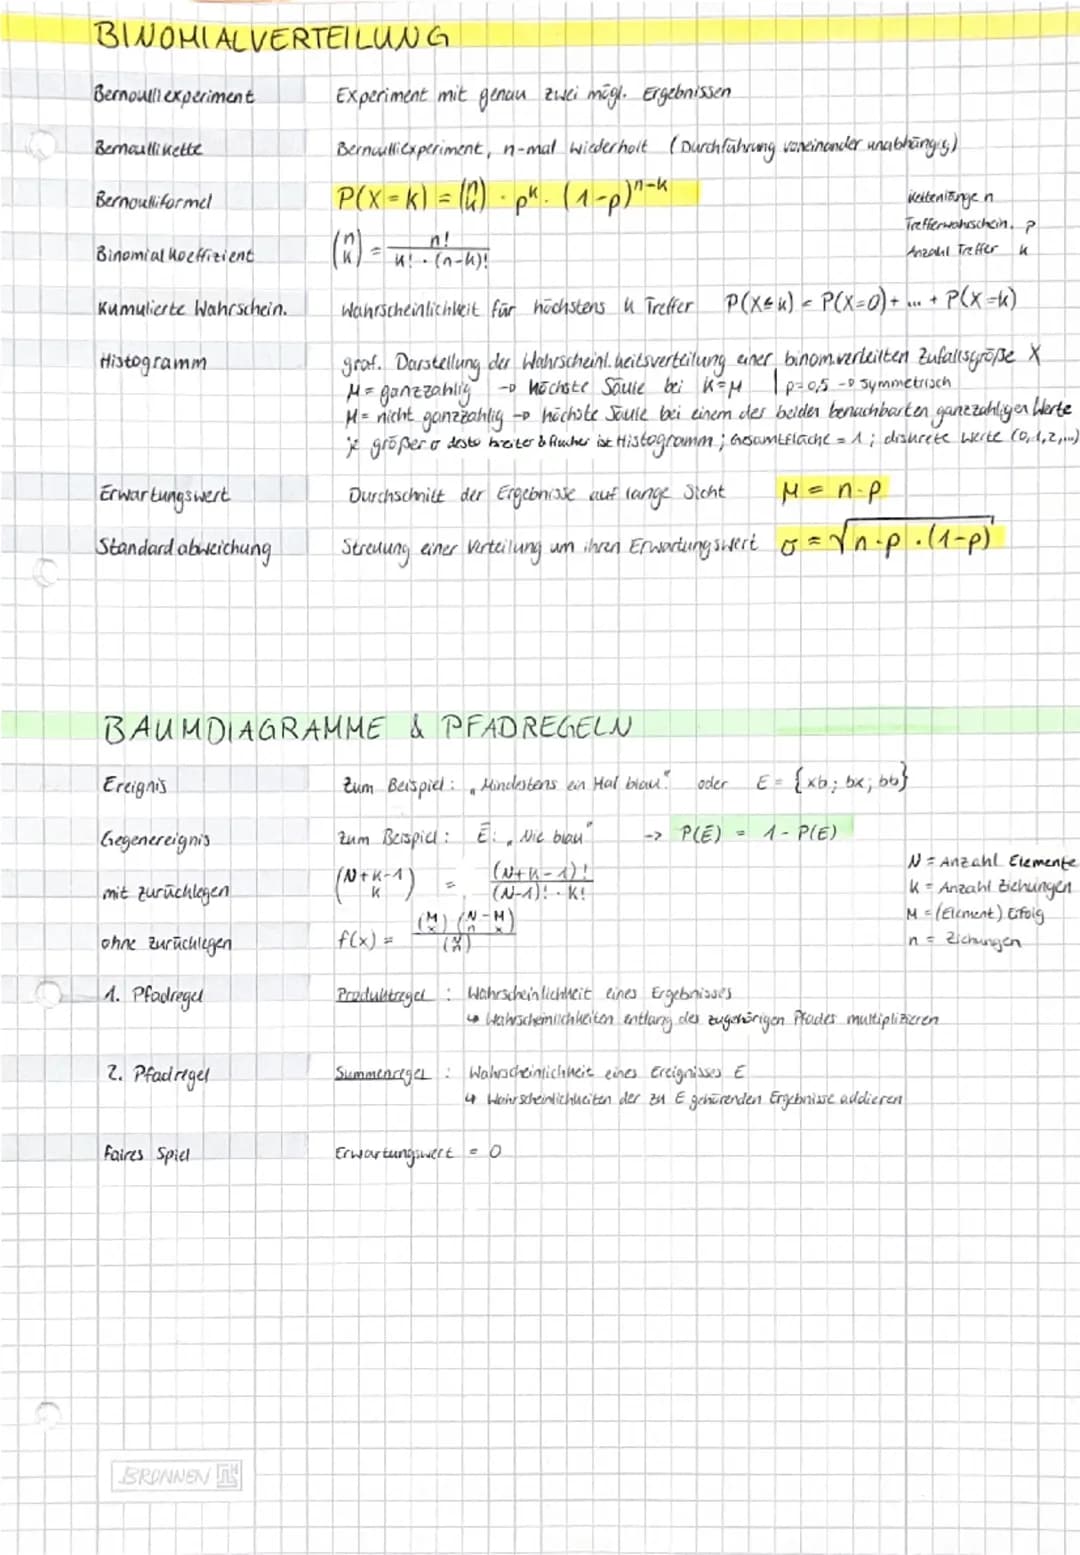 BINOMIALVERTEILUNG
Bernoulliexperiment Experiment mit genau zwei mögl. Ergebnissen
Bernoullikette Bernoulliexperiment, n-mal wiederholt (Durchführung voneinander unabhängig)
Bernoulliformel P(X=k) = (n k) · p^k · (1-p)^n-k
Kettenlänge n
Trefferwahrschein. p
Anzahl Treffer k
Binomialkoeffizient (n k) = n! / k! · (n-k)!
Kumulierte Wahrschein. Wahrscheinlichkeit für höchstens k Treffer P(X≤k) = P(X=0) + ... + P(X=k)
Histogramm graf. Darstellung der Wahrscheinl.keitsverteilung einer binom.verteilten Zufallsgröße X
μ = ganzzahlig → höchste Säule bei k=μ | p=0,5 → symmetrisch
μ = nicht ganzzahlig → höchste Säule bei einem der beiden benachbarten ganzzahligen Werte
je größer σ desto breiter & flacher ist Histogramm ; Gesamtfläche = 1 ; diskrete Werte (0,1,2,...)
Erwartungswert Durchschnitt der Ergebnisse auf lange Sicht μ = n·p
Standardabweichung Streuung einer Verteilung um ihren Erwartungswert σ = √n·p·(1-p)
BAUMDIAGRAMME & PFADREGELN
Ereignis Zum Beispiel: „Mindestens ein Mal blau" oder E = {xb; bx; bb}
Gegenereignis zum Beispiel: Ē: „Nie blau" -> P(Ē) = 1 - P(E)
mit zurücklegen (N+k-1 k) = (N+k-1)! / (N-1)! · k!
N = Anzahl Elemente
k = Anzahl Ziehungen
M = (Element) Erfolg
n = Ziehungen
ohne zurücklegen f(x) =
1. Pfadregel Produktregel : Wahrscheinlichkeit eines Ergebnisses
↳ Wahrscheinlichkeiten entlang des zugehörigen Pfades multiplizieren
2. Pfadregel Summenregel : Wahrscheinlichkeit eines Ereignisses E
↳ Wahrscheinlichkeiten der zu E gehörenden Ergebnisse addieren
Faires Spiel Erwartungswert = 0
BRUNNEN